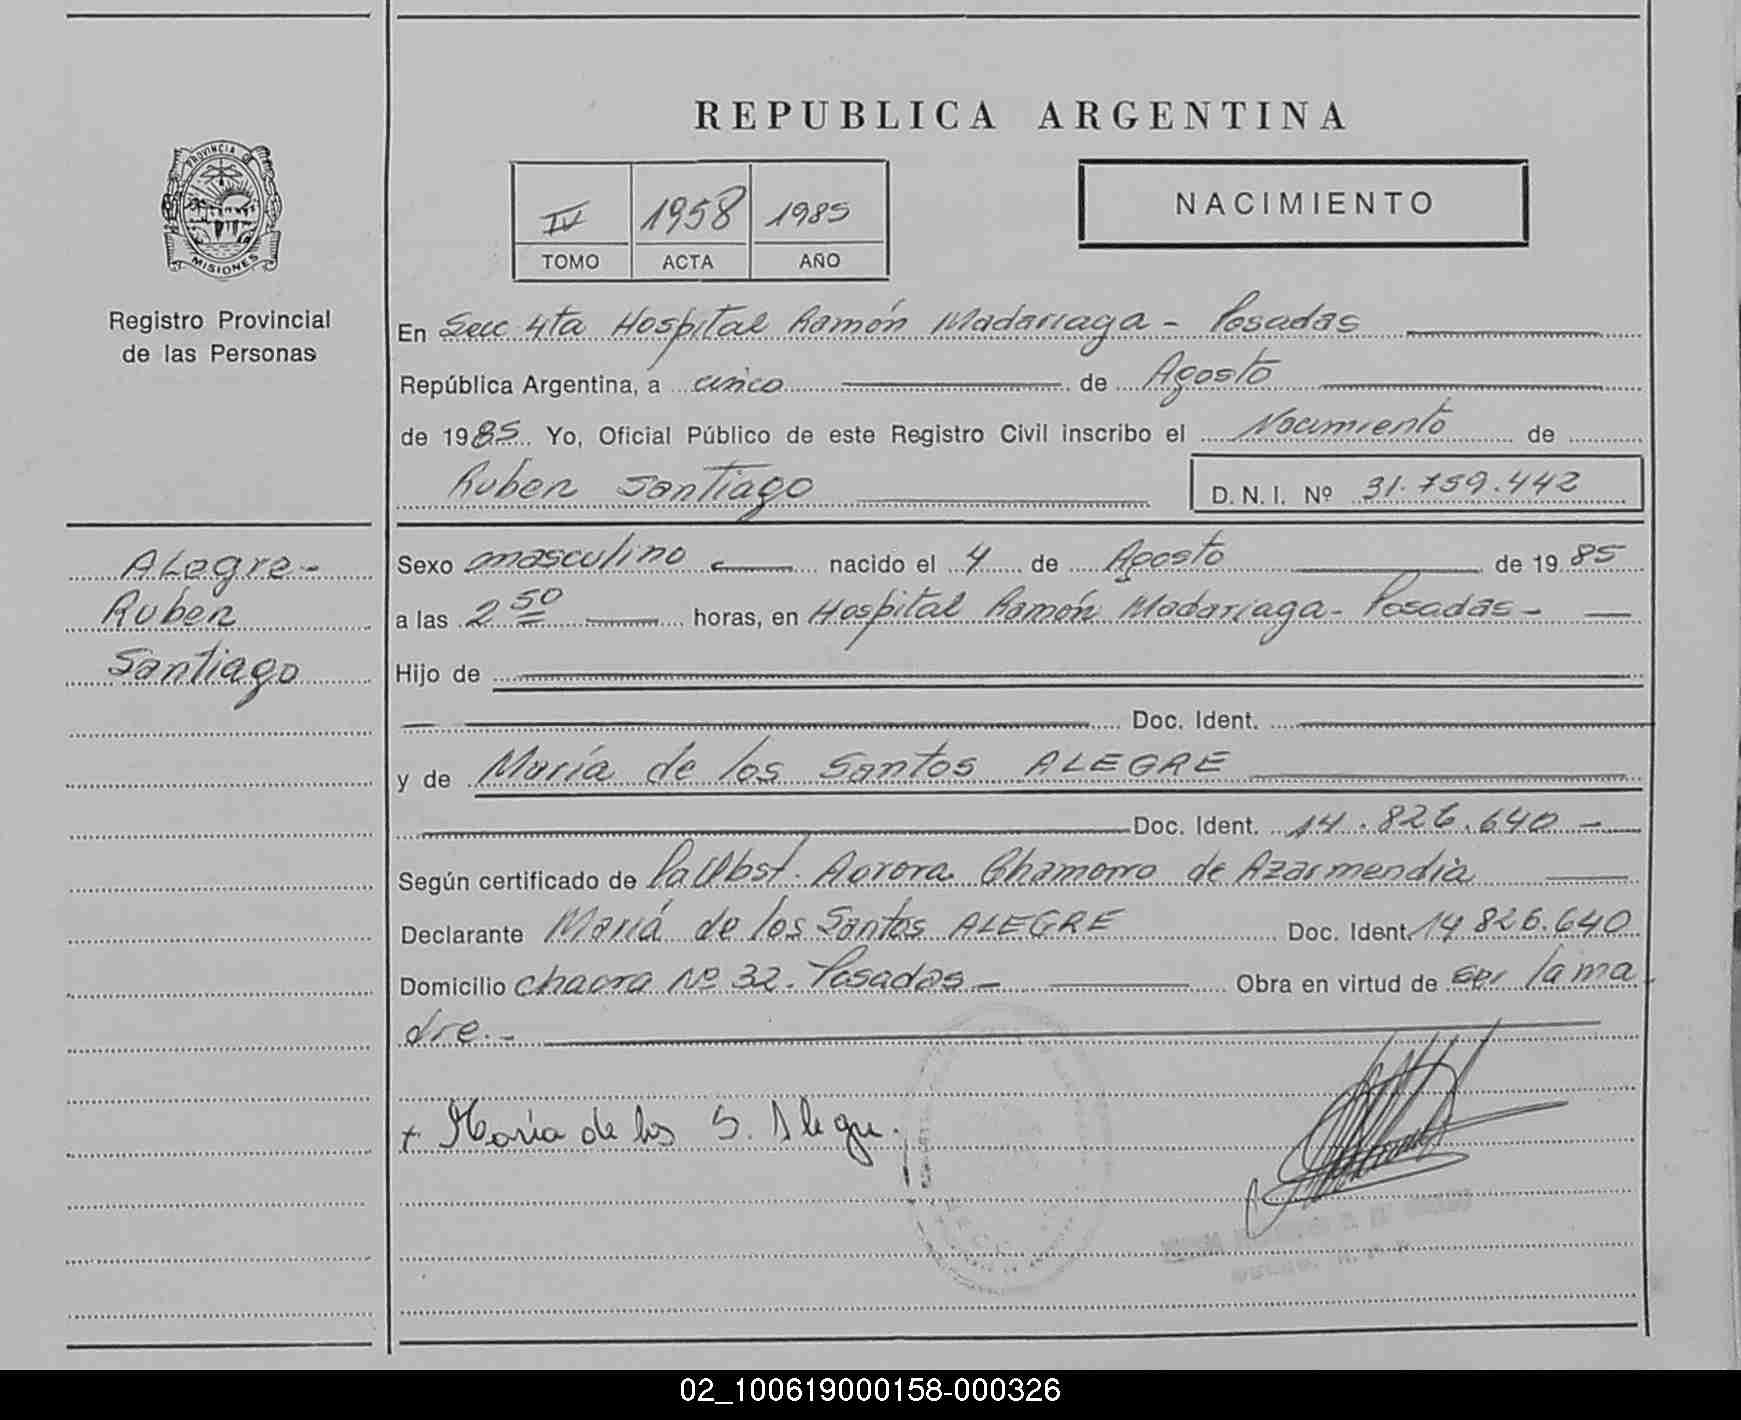 REPUBLICA ARGENTINA
PROVINCIA DE
MISIONES
Registro Provincial
de las Personas
IV 1958 1985
TOMO ACTA AÑO
NACIMIENTO
En Secc 4ta Hospital Ramón Madariaga - Posadas
República Argentina, a cinco de Agosto
de 1985 Yo, Oficial Público de este Registro Civil inscribo el Nacimiento de
Ruben Santiago
D.N.I. Nº 31.759.442
ALegre-
Ruben
Santiago
Sexo masculino nacido el 4 de Agosto de 1985
a las 2 50 horas, en Hospital Ramón Madariaga - Posadas -
Hijo de
Doc. Ident.
y de María de los Santos ALEGRE
Doc. Ident. 14.826.640 -
Según certificado de Aurora Chamorro de Azarmendia
Declarante María de los Santos ALEGRE Doc. Ident. 14 826.640
Domicilio chacra Nº 32. Posadas - Obra en virtud de ser la ma
dre.-
+ María de los S. Alegre.
02_100619000158-000326